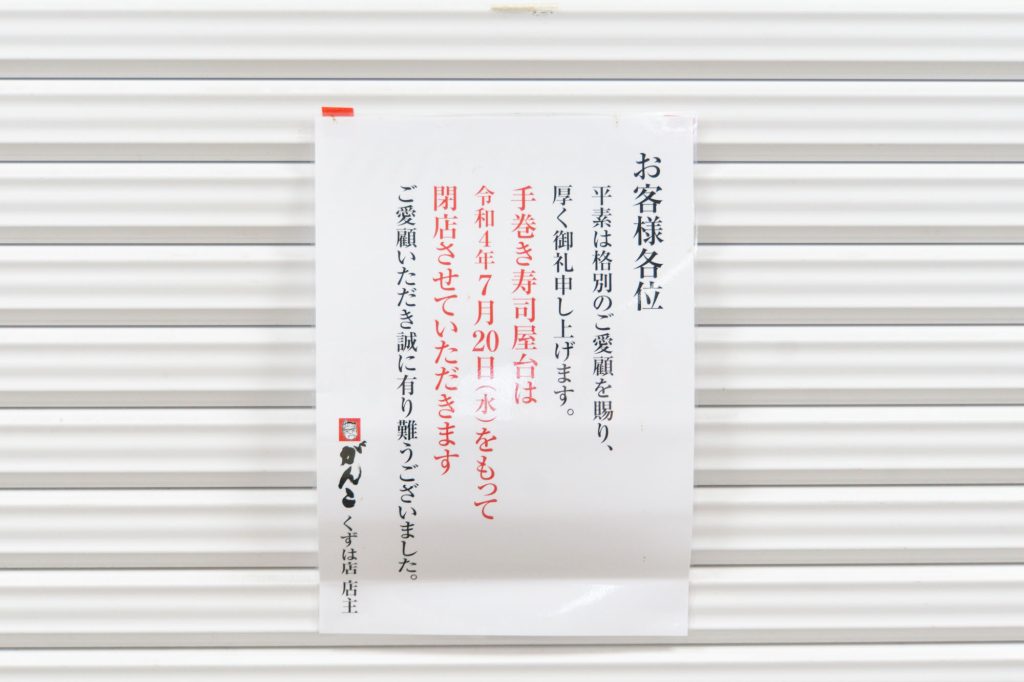 お客様各位
平素は格別のご愛顧を賜り、
厚く御礼申し上げます。
手巻き寿司屋台は
令和4年7月20日(水)をもって
閉店させていただきます
ご愛顧いただき誠に有り難うございました。
がんこ くずは店 店主